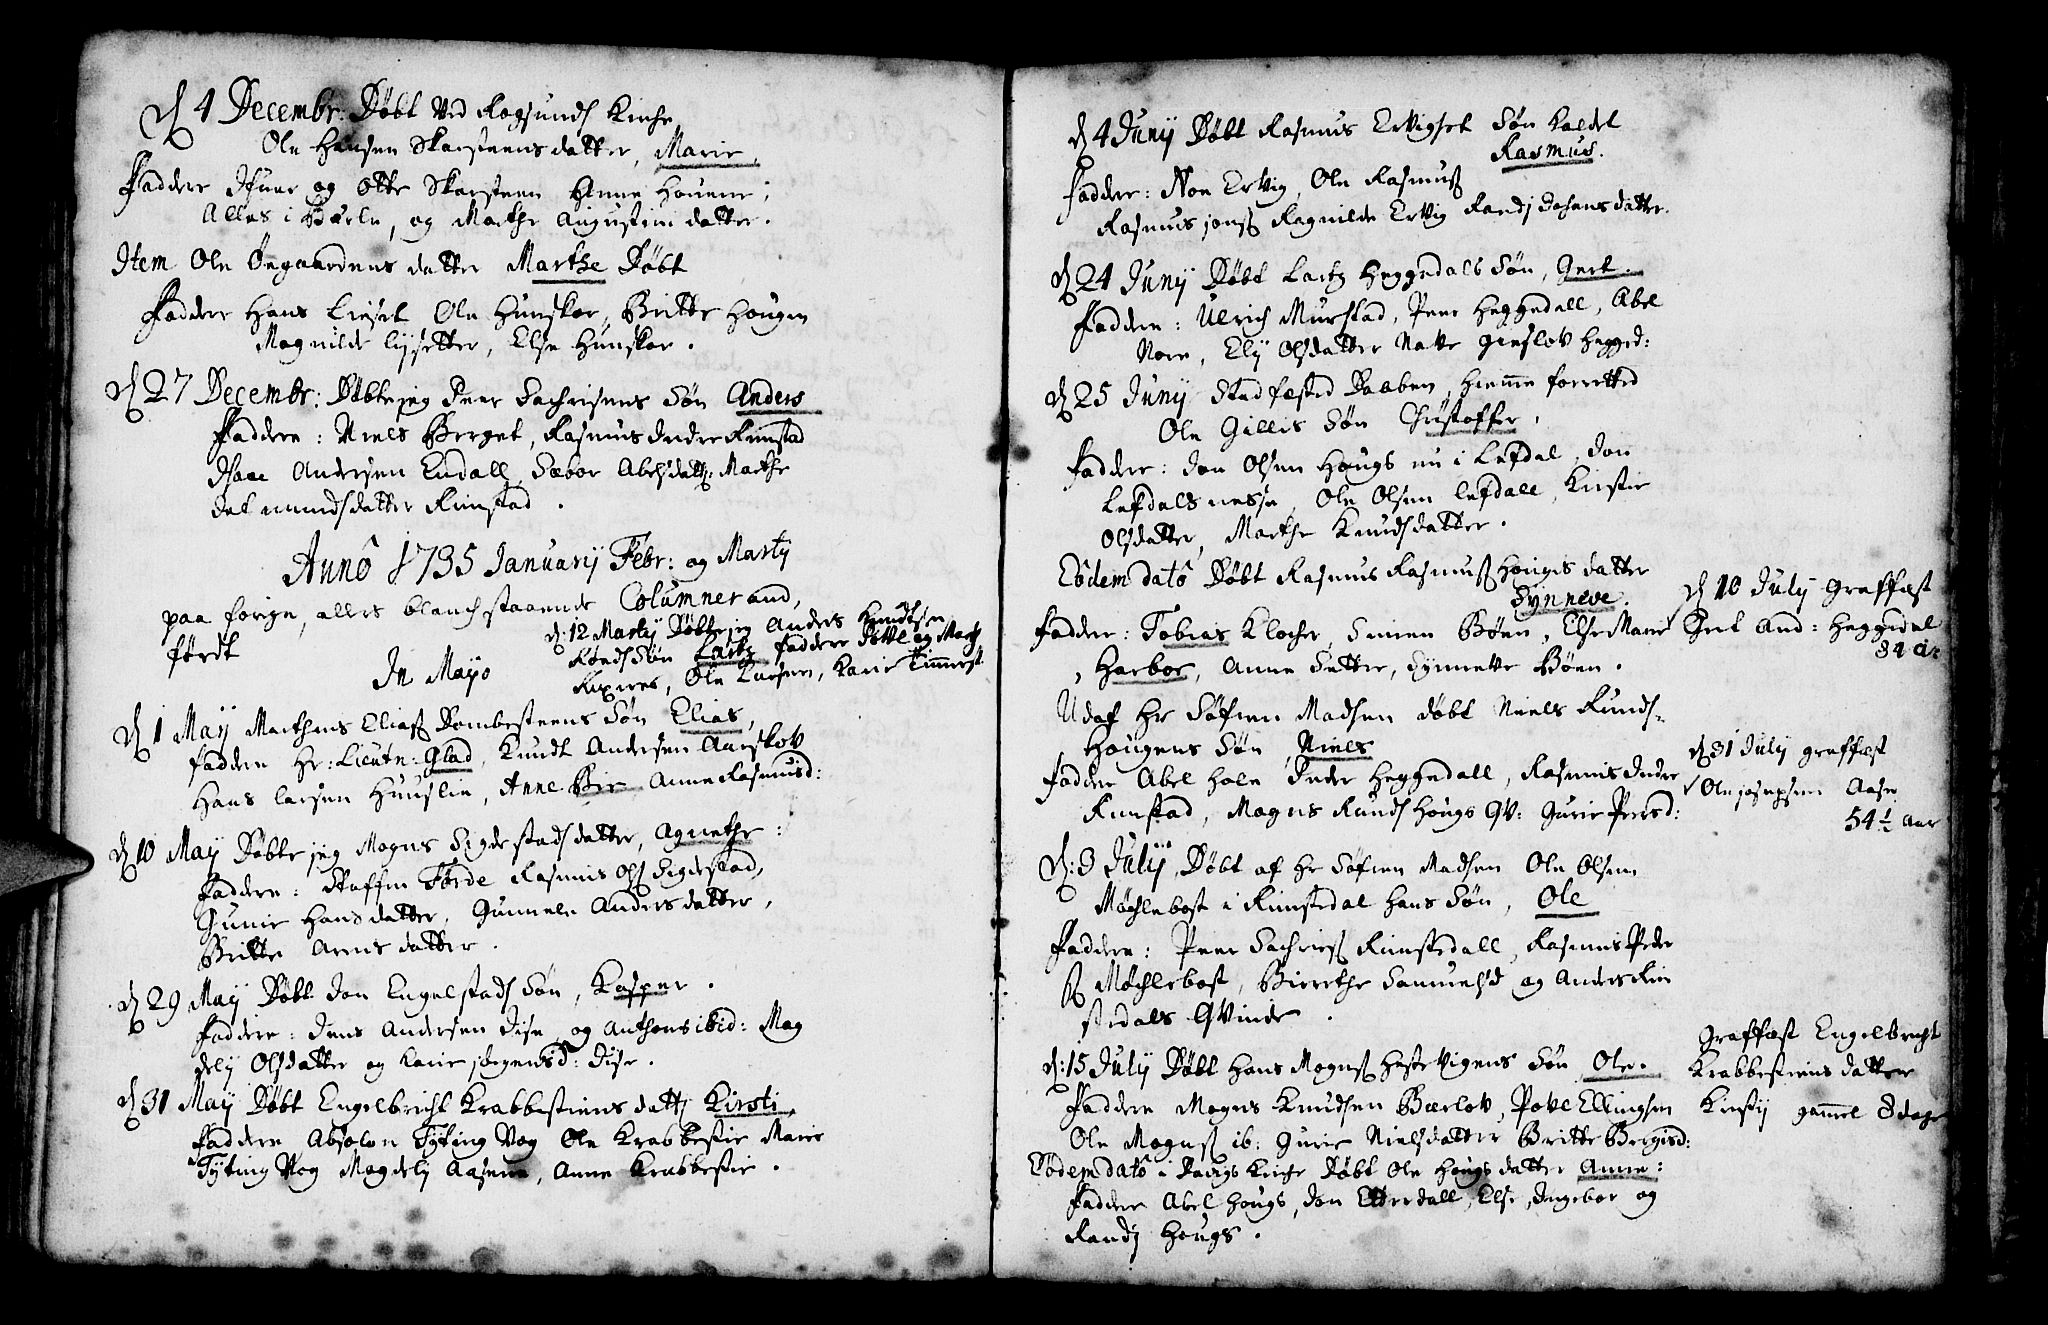 D 4 Decembr: Døbt ved Rogsunds Kirche
Ole Hansen Skarsteens datter, Marie,
Faddere Ifuer og Otte Skarsteen Anne Houene;
Alles i Hdærle, og Marthe Augustini datter.
Item Ole Øegaardens datter Marthe Døbt
Faddere Hans Liset Ole Hunskor, Britte Hougen
Magnilde lysetter, Else Hunskor.
D 27 Decembr: Døbte jeg Peer Sachrisens Søn Anders
Faddere: Niels Berget, Rasmus Indre Rimstad
Isaac Andersen Endall, Sæbor Abelsdatt: Marthe
Detmundsdatter Rimstad.
Anno 1735 Januarij Febr: og Martij
paa forige, alles blanch staaende Columner and,
førdt
D: 12 Martij Døbte jeg Anders Knudtsen
Rønds Søn Lartz faddere Povl og Math
Rixnes, Ole Larsen, Karie Timmerst.
In Mayo
D 1 Maij Marthens Elias Dombesteens Søn Elias,
faddere Hr: Lieutn: Glad, Knudt Andersen Aarskov
Hans larsen Hunslie, Anne Bie Anne Rasmusd:
D 10 Maij Døbte jeg Mogns Sigdestads datter, Agnethe:
Faddere: Staffen Førde Rasmus Ols Sigdestad,
Gurie Hansdatter, Gunnele Andersdatter,
Britte Arensdatter.
D 29 Maij Døbt Jon Engelstads Søn, Kasper.
Faddere: Jens Andersen Dise og Anthons ibid: Mag
deli Olsdatter og Karie Jørgensd: Dise.
D 31 Maij Døbt Engelbricht Krabbestiens datt: Kirsti,
Faddere Absolon Tyting Vog Ole Krabbestie Marie
Tyting Vog Magdeli Aasene, Anne Krabbestie.
D 4 Junij Døbt Rasmus Ervigset Søn kaldet
Rasmus.
Faddere: Noe Ervig, Ole Rasmus
Rasmus jons Ragnilde Ervig Randi Johansdatter.
D 24 Junij Døbt Lartz Heggedals Søn, Gert.
Faddere: Ulrich Murstad, Peer Heggedall, Abel
Nore, Elj Olsdatter Natte Gieslov hegged:
D 25 Junij Stadfæsted Daaben, hieme forretted
Ole Gillis Søn Christoffer,
Faddere: Jon Olsen Hougs nu i Lefdal, Jon
Lefdals nesse, Ole Olsen lefdall, Kirstie
Olsdatter, Marthe Knudsdatter.
Eôdem datô Døbt Rasmus Rasmus Hougs datter
Synneve.
Faddere: Tobias Klocher, Simen Bøen, Else Marie
Harboe, Anne Sætter, Synnette Bøen.
Udaf Hr Søfren Madsen døbt Niels Runds-
Hougens Søn Niels
Faddere Abel hole Inder Heggedall, Rasmus Indre
Rimstad, Magns Rundshougs Qv: Gurie Peersd:
D: 3 Julij Døbt af Hr Søfren Madsen Ole Olsen
Møchlebost i Rimstedal hans Søn, Ole
Faddere: Peer Sachries Rimstedall, Rasmus Peder
s Møchlebost, Bierethe Samuelsd og Anders Rim
stedals Qvinde.
D: 15 Julij Døbt Hans Mogns Hestevigens Søn Ole.
Faddere Mogns Knudsen Bærlov, Povl Ellingsen
Ole Mogns ib: Gurie Nielsdatter Britte Bergisd:
Eôdem datô i Davigs Kirche Døbt Ole Hougs datter Anne:
Faddere Abel Hougs, Jon Etterdall, Else, Ingebor og
Randj Hougs.
D 10 Julij Graffæst
Gert And: Heggedal
84 Ar
D 31 Julij graffæst
Ole josepsen Aase
54 1/2 Aar
Graffæst Engelbricht
Krabbestiens datter
Kirstij gammel 8 dage